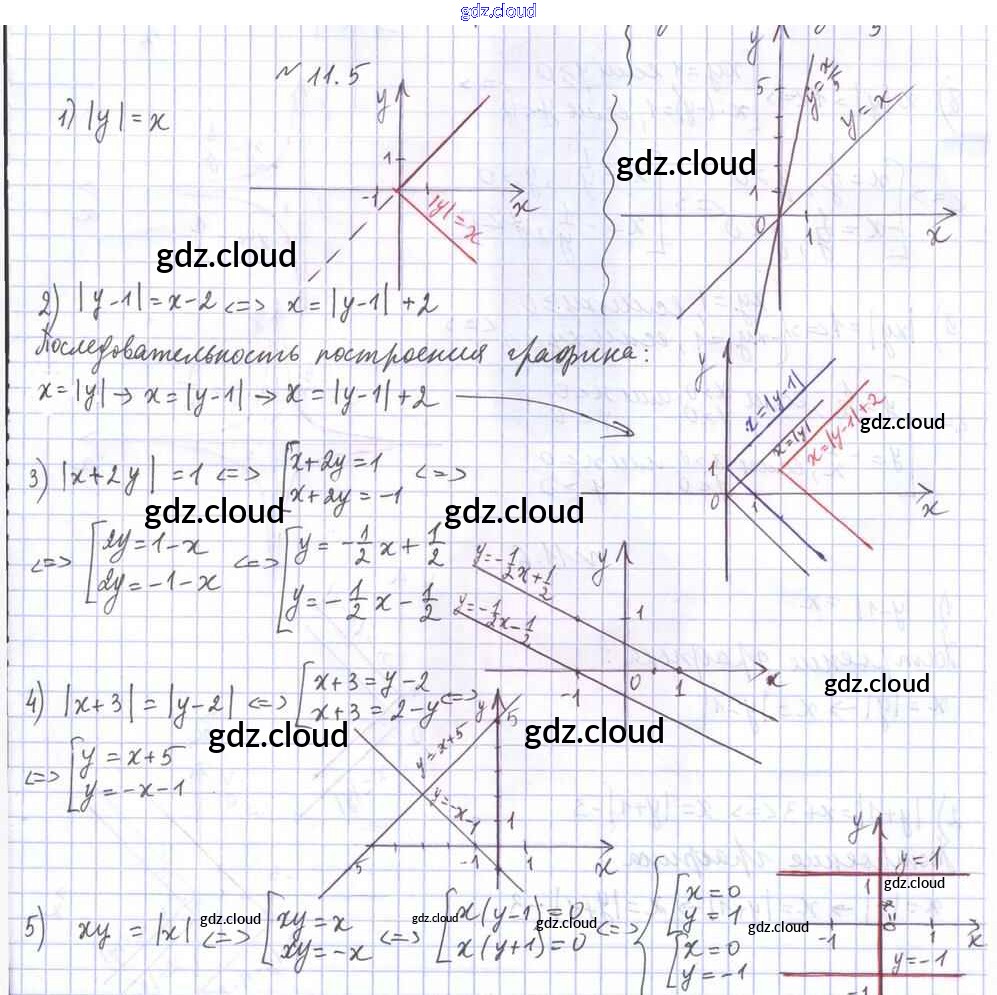 gdz.cloud
№ 11.5
1) |y| = x
y
1
-1
|y| = x
x
y
5
y = x
1
0
1
x
gdz.cloud
gdz.cloud
2) |y-1| = x-2 <=> x = |y-1| + 2
Последовательность построения графика:
x = |y| → x = |y-1| → x = |y-1| + 2
y
x = |y-1|
x = |y|
x = |y-1| + 2
gdz.cloud
1
0
1
x
3) |x+2y| = 1 <=> [ x+2y = 1
x+2y = -1 <=>
gdz.cloud
gdz.cloud
<=> [ 2y = 1-x
2y = -1-x <=> [ y = -1/2 x + 1/2
y = -1/2 x - 1/2
y = -1/2 x + 1/2
y = -1/2 x - 1/2
y
1
-1
0
1
x
gdz.cloud
4) |x+3| = |y-2| <=> [ x+3 = y-2
x+3 = 2-y <=>
gdz.cloud
gdz.cloud
<=> [ y = x+5
y = -x-1
y
5
y = x+5
y = -x-1
1
-5
-1
1
x
5) xy = |x| <=> [ xy = x
xy = -x <=> [ x(y-1) = 0
x(y+1) = 0 <=> { [ x = 0
y = 1
[ x = 0
y = -1
gdz.cloud
gdz.cloud
gdz.cloud
y
y = 1
1
gdz.cloud
x=0
0
-1
1
x
y = -1
-1